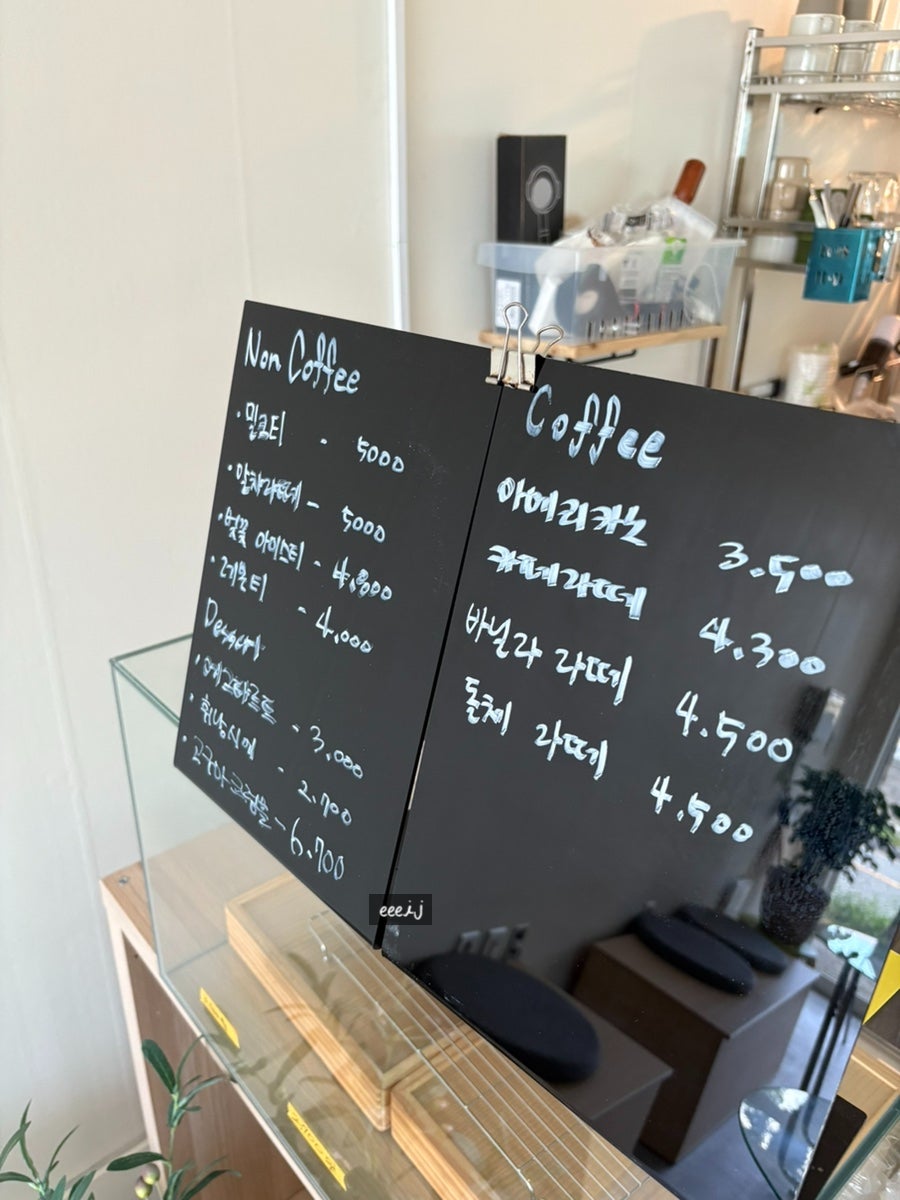 Non Coffee
· 밀크티 - 5000
· 말차라떼 - 5000
· 벚꽃 아이스티 - 4,800
· 레몬티 - 4,000
Dessert
· 에그타르트 - 3,000
· 휘낭시에 - 2.700
· 고구마 크럼블 - 6.700
Coffee
아메리카노 3.500
카페라떼 4.300
바닐라 라떼 4.500
돌체 라떼 4.500
eeejj